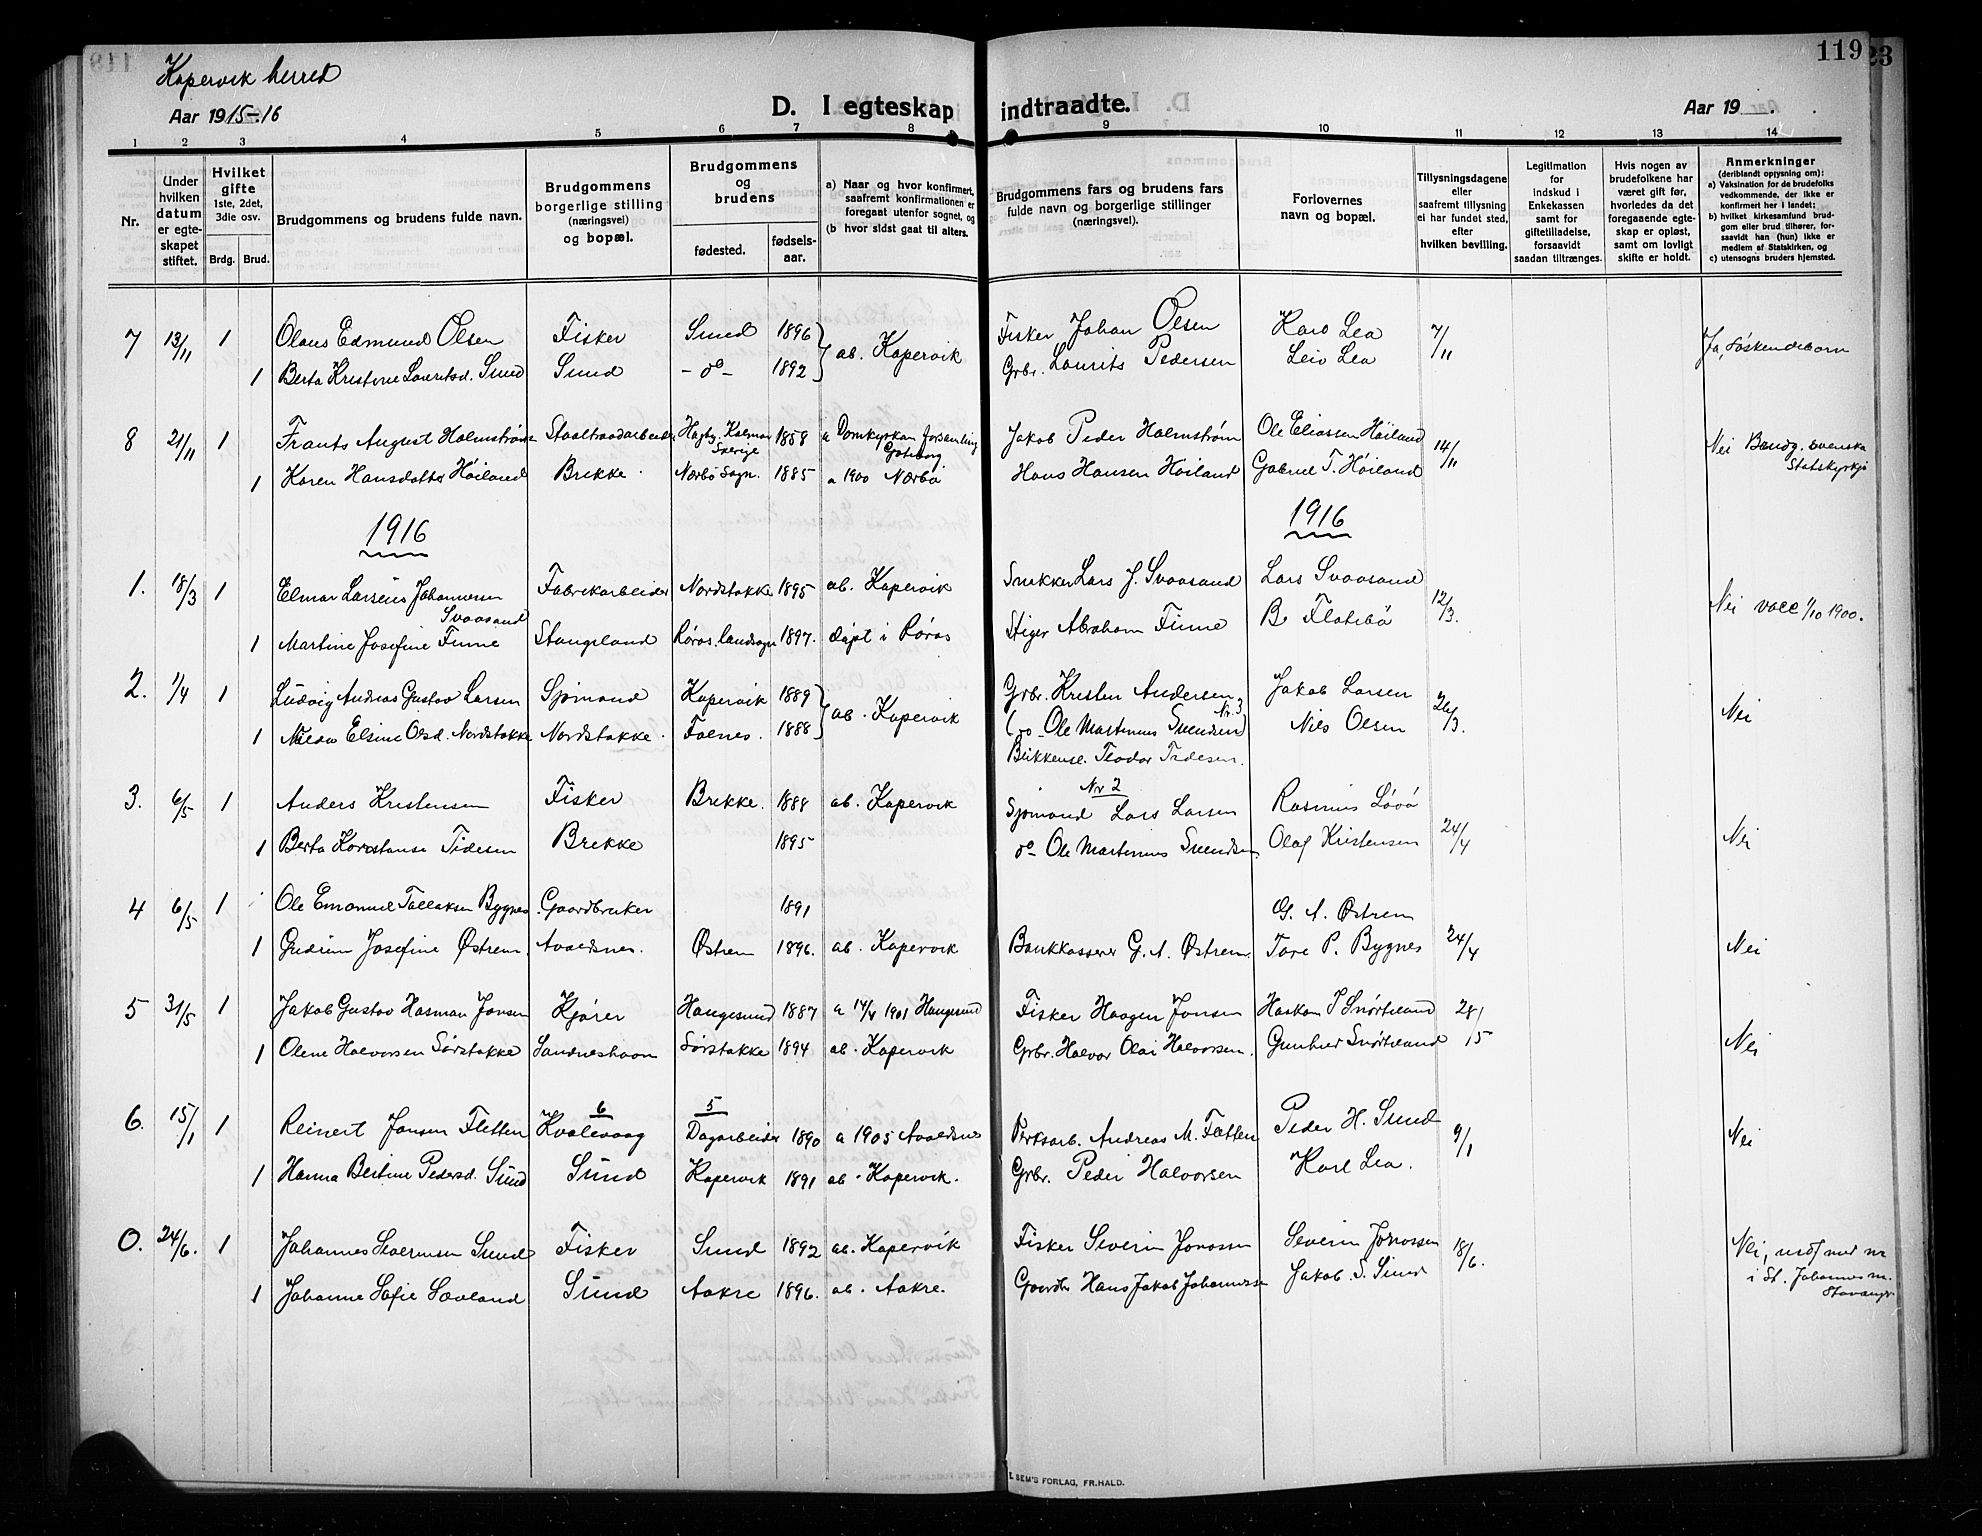 Kopervik herred
119
Aar 1915-16
D. I egteskap indtraadte.
Aar 19
1 2 3 4 5 6 7 8 9 10 11 12 13 14
Nr.
Under hvilken datum er egteskapet stiftet.
Hvilket gifte 1ste, 2det, 3die osv.
Brdg. Brud.
Brudgommens og brudens fulde navn.
Brudgommens borgerlige stilling (næringsvei) og bopæl.
Brudgommens og brudens
fødested. fødselsaar.
a) Naar og hvor konfirmert, saafremt konfirmationen er foregaat utenfor sognet, og
(b hvor sidst gaat til alters.
Brudgommens fars og brudens fars fulde navn og borgerlige stillinger (næringsvei).
Forlovernes navn og bopæl.
Tillysningsdagene eller saafremt tillysning ei har fundet sted, efter hvilken bevilling.
Legitimation for indskud i Enkekassen samt for giftetilladelse, forsaavidt saadan tiltrænges.
Hvis nogen av brudefolkene har været gift før, hvorledes da det foregaaende egteskap er opløst, samt om lovligt skifte er holdt.
Anmerkninger (deriblandt opjysning om):
a) Vaksination for de brudefolks vedkommende, der ikke er konfirmert her i landet;
b) hvilket kirkesamfund brudgom eller brud tilhører, forsaavidt han (hun) ikke er medlem av Statskirken, og
c) utensogns bruders hjemsted.
7 13/11 1 Olaus Edmund Olsen Fisker Sund 1896 ab. Kopervik Fisker Johan Olsen Karo Lea 7/11 Ja, Søskendebarn
1 Berta Kristine Lauritsd. Sund Sund - do - 1892 Grbr. Laurits Pedersen Leiv Lea
8 21/11 1 Frants August Holmstrøm Staaltraadarbeider Hagby, Kalmar Sverige 1858 a Domkyrkan forsamling Göteborg Jakob Peder Holmstrøm Ole Eliassen Höiland 14/11 Nei Brudg. svenska Statskyrkje
1 Karen Hansdatter Höiland Brekke. Nærbö Sogn. 1885 a 1900 Nærbö Hans Hansen Höiland Gabriel T. Höiland
1916 1916
1. 18/3 1 Elmar Larsens Johannessen Svaasand Fabrikarbeider Nordstokke 1895 ab. Kopervik Snekker Lars J. Svaasand Lars Svaasand 12/3. Nei vacc 1/10 1900.
1 Martine Josefine Finne Stangeland Röros landsogn 1897. døpt i Röros Stiger Abraham Finne B. Flatebö
2. 1/4 1 Ludvig Andreas Gustav Larsen Sjømand Kopervik 1889 ab. Kopervik Grbr. Kristen Andersen Nr. 3 Jakob Larsen 26/3. Nei
1 Elsine Olsd. Nordstokke Nordstokke. Fœnes. 1888 (do Ole Martinus Svendsen) Nils Olsen
Teodor Tidesen.
3. 6/5 1 Anders Kristensen Fisker Brekke. 1888 ab. Kopervik Nr 2 Sjømand Lars Larsen Rasmus Lövö 24/4 Nei
1 Berta Konstanse Tidesen Brekke 1895 do Ole Martinus Svendsen Olaf Kristensen
4 6/5 1 Ole Emanuel Tallaksen Bygnes Gaardbruker 1891 G. A. Østrem 24/4
1 Gudrun Josefine Østrem. Avaldsnes. Østrem 1896. ab. Kopervik Bankkasserer G. A. Østrem. Tore P. Bygnes Nei
5 31/5 1 Jakob Gustav Hasman Jonsen Kjører Haugesund 1887 a 14/4 1901 Haugesund Fisker Haagen Jonsen Haakon P Snørteland 28/5
1 Olene Halvorsen Sørstokke Sandneshavn Sørstokke 1894 ab. Kopervik Grbr. Halvor Olai Halvorsen. Gunhild Snørteland Nei
6. 15/1 1 Reinert Jonsen Fletten 6 Kvalevaag 5 Dagarbeider 1890 a 1905 Avaldsnes Andreas M. Fletten Peder H. Sund 9/1 Nei
1 Hanna Bertine Pedersd. Sund Sund Kopervik 1891 ab. Kopervik. Grbr. Peder Halvorsen Karl Lea.
0. 24/6. 1 Johannes Severinsen Sund Fisker Sund 1892 ab. Kopervik Fisker Severin Jonossen Severin Jonossen 18/6. Nei,
1 Johanne Sofie Sœvland Sund Aakre 1896. ab. Aakre. Gaardbr Hans Jakob Johannessen Jakob S. Sund i St. Johannes m. Stavanger
SEM'S FORLAG, FR.HALD.